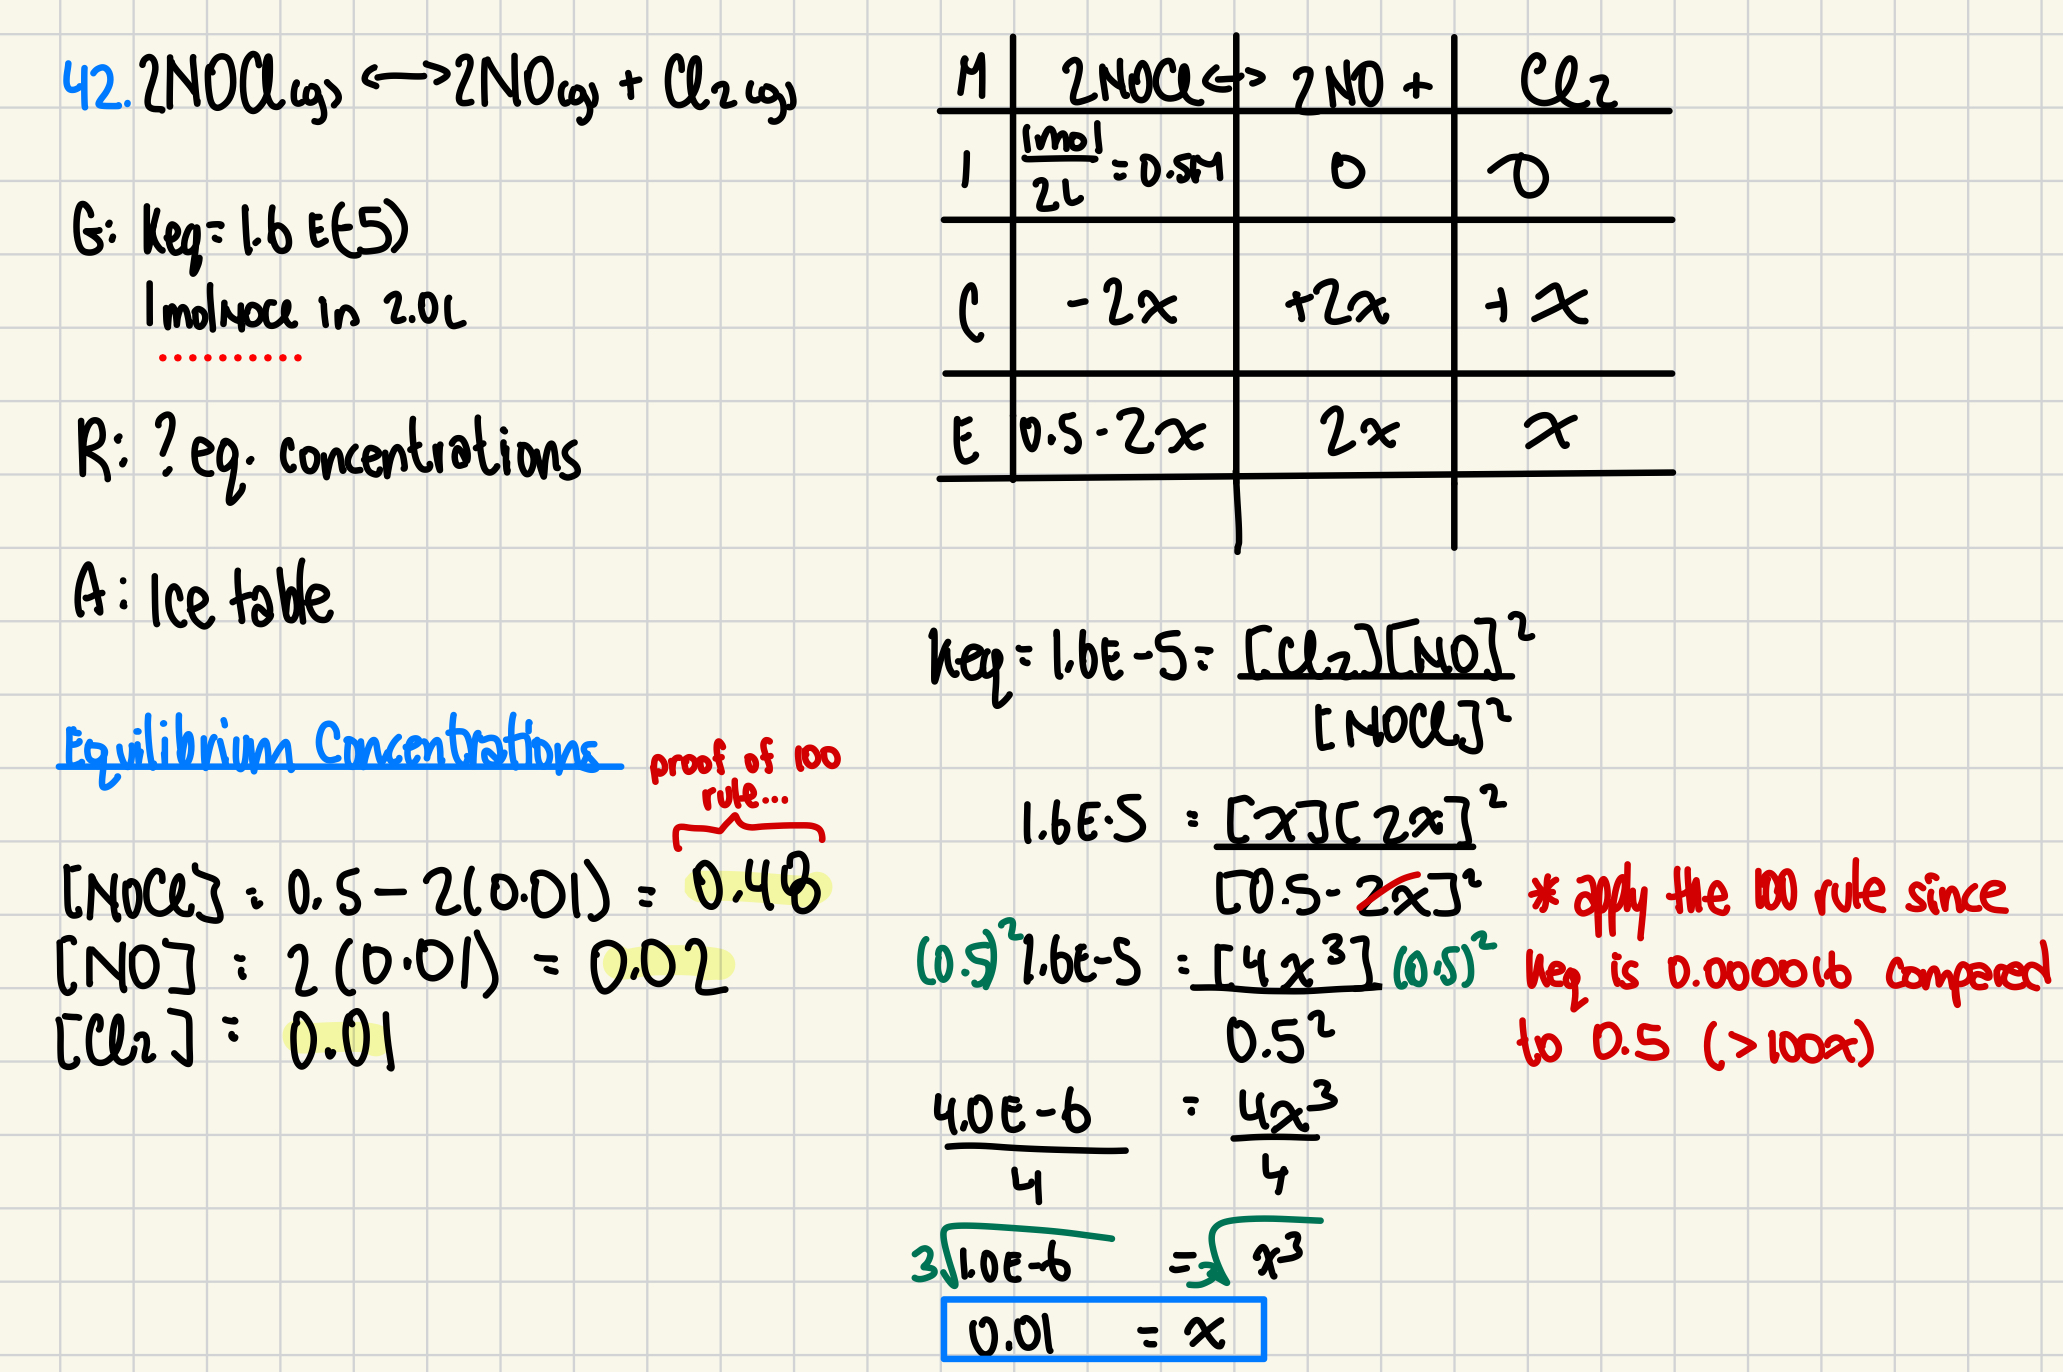 42. 2NOCl(g) <—> 2NO(g) + Cl2(g)
G: Keq = 1.6 E(-5)
1molNOCl in 2.0L
R: ? eq. concentrations
A: Ice table
M | 2NOCl <-> | 2NO + | Cl2
I | 1mol/2L = 0.5M | 0 | 0
C | -2x | +2x | +x
E | 0.5-2x | 2x | x
Keq = 1.6E-5 = [Cl2][NO]²
[NOCl]²
1.6E-5 = [x][2x]²
[0.5-2x]²
* apply the 100 rule since
Keq is 0.000016 compared
to 0.5 (>100x)
(0.5)² 1.6E-5 = [4x³] (0.5)²
0.5²
4.0E-6 = 4x³
4 4
3√1.0E-6 = 3√x³
0.01 = x
Equilibrium Concentrations
proof of 100
rule...
[NOCl] = 0.5 - 2(0.01) = 0.48
[NO] = 2(0.01) = 0.02
[Cl2] = 0.01